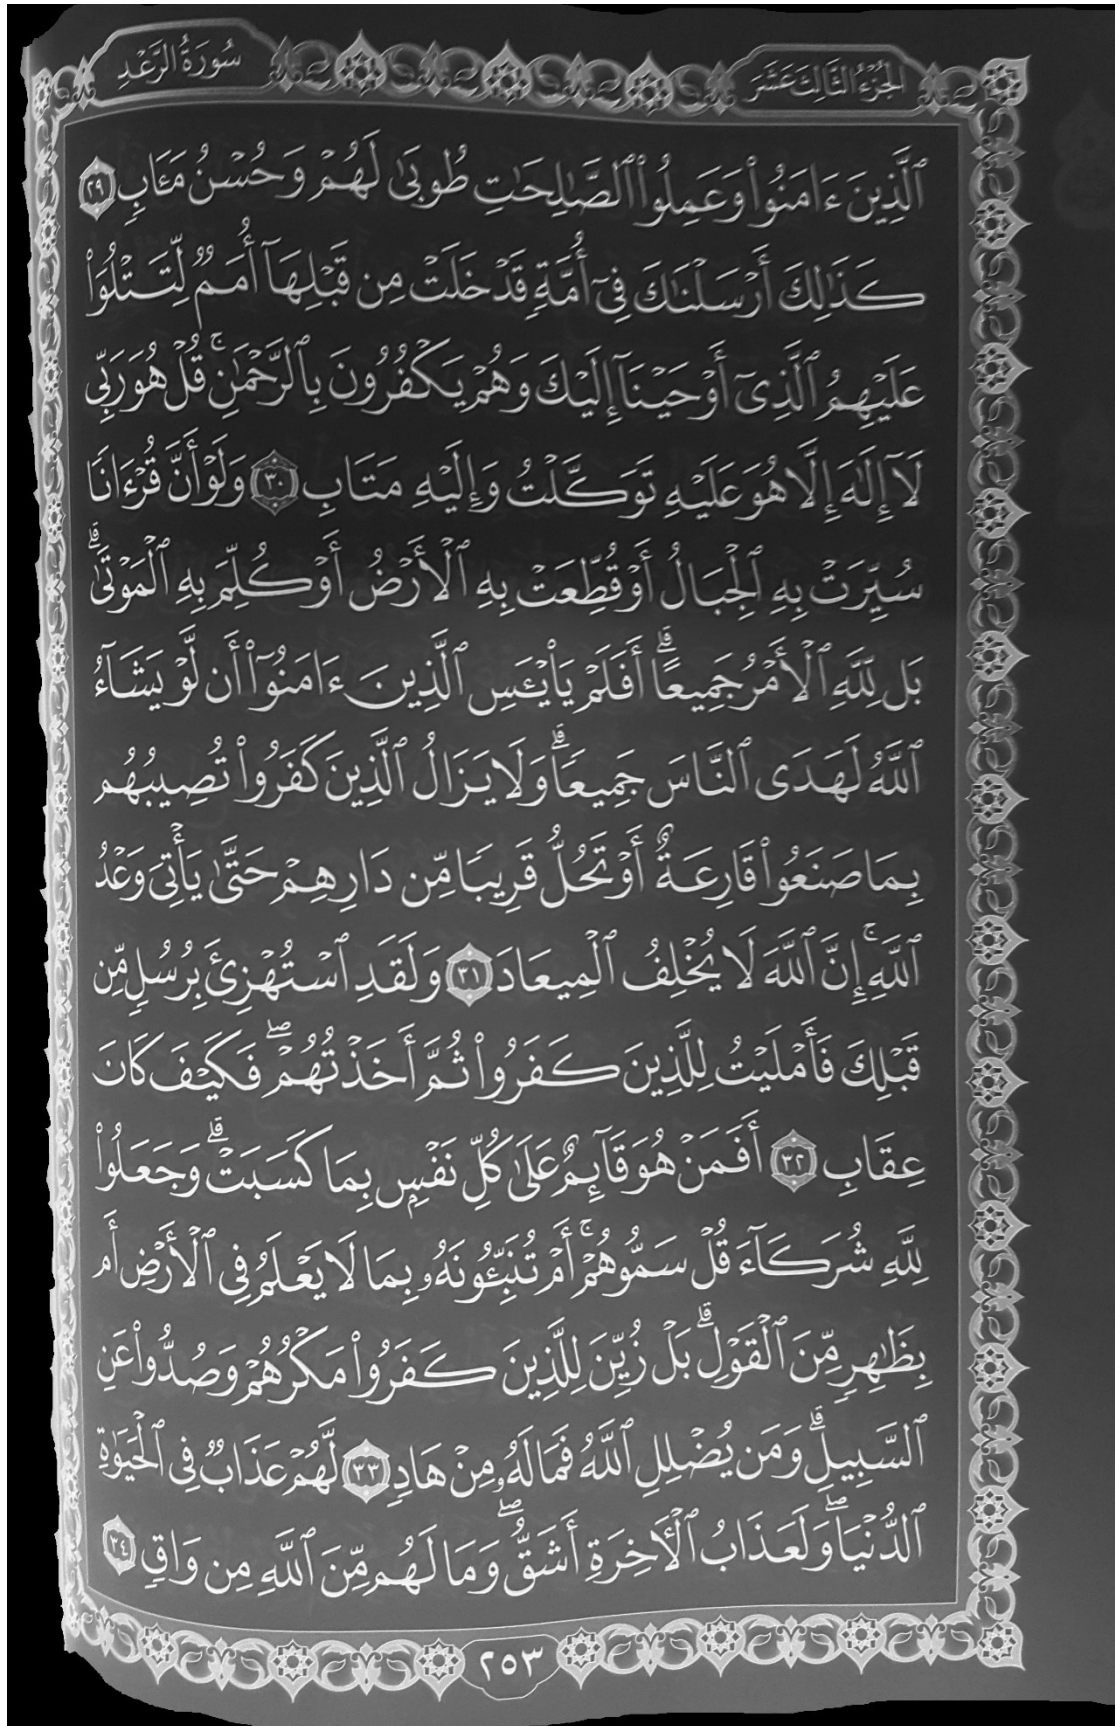 الجُزْءُ الثَّالِثَ عَشَرَ
سُورَةُ الرَّعْدِ
ٱلَّذِينَ ءَامَنُوا۟ وَعَمِلُوا۟ ٱلصَّـٰلِحَـٰتِ طُوبَىٰ لَهُمْ وَحُسْنُ مَـَٔابٍ ٢٩
كَذَٰلِكَ أَرْسَلْنَـٰكَ فِىٓ أُمَّةٍ قَدْ خَلَتْ مِن قَبْلِهَآ أُمَمٌ لِّتَتْلُوَا۟
عَلَيْهِمُ ٱلَّذِىٓ أَوْحَيْنَآ إِلَيْكَ وَهُمْ يَكْفُرُونَ بِٱلرَّحْمَـٰنِ ۚ قُلْ هُوَ رَبِّى
لَآ إِلَـٰهَ إِلَّا هُوَ عَلَيْهِ تَوَكَّلْتُ وَإِلَيْهِ مَتَابِ ٣٠ وَلَوْ أَنَّ قُرْءَانًا
سُيِّرَتْ بِهِ ٱلْجِبَالُ أَوْ قُطِّعَتْ بِهِ ٱلْأَرْضُ أَوْ كُلِّمَ بِهِ ٱلْمَوْتَىٰ ۗ
بَل لِّلَّهِ ٱلْأَمْرُ جَمِيعًا ۗ أَفَلَمْ يَا۟يْـَٔسِ ٱلَّذِينَ ءَامَنُوٓا۟ أَن لَّوْ يَشَآءُ
ٱللَّهُ لَهَدَى ٱلنَّاسَ جَمِيعًا ۗ وَلَا يَزَالُ ٱلَّذِينَ كَفَرُوا۟ تُصِيبُهُم
بِمَا صَنَعُوا۟ قَارِعَةٌ أَوْ تَحُلُّ قَرِيبًا مِّن دَارِهِمْ حَتَّىٰ يَأْتِىَ وَعْدُ
ٱللَّهِ ۚ إِنَّ ٱللَّهَ لَا يُخْلِفُ ٱلْمِيعَادَ ٣١ وَلَقَدِ ٱسْتُهْزِئَ بِرُسُلٍ مِّن
قَبْلِكَ فَأَمْلَيْتُ لِلَّذِينَ كَفَرُوا۟ ثُمَّ أَخَذْتُهُمْ ۖ فَكَيْفَ كَانَ
عِقَابِ ٣٢ أَفَمَنْ هُوَ قَآئِمٌ عَلَىٰ كُلِّ نَفْسٍۭ بِمَا كَسَبَتْ ۗ وَجَعَلُوا۟
لِلَّهِ شُرَكَآءَ قُلْ سَمُّوهُمْ ۚ أَمْ تُنَبِّـُٔونَهُۥ بِمَا لَا يَعْلَمُ فِى ٱلْأَرْضِ أَم
بِظَـٰهِرٍ مِّنَ ٱلْقَوْلِ ۗ بَلْ زُيِّنَ لِلَّذِينَ كَفَرُوا۟ مَكْرُهُمْ وَصُدُّوا۟ عَنِ
ٱلسَّبِيلِ ۗ وَمَن يُضْلِلِ ٱللَّهُ فَمَا لَهُۥ مِنْ هَادٍ ٣٣ لَّهُمْ عَذَابٌ فِى ٱلْحَيَوٰةِ
ٱلدُّنْيَا ۖ وَلَعَذَابُ ٱلْـَٔاخِرَةِ أَشَقُّ ۖ وَمَا لَهُم مِّنَ ٱللَّهِ مِن وَاقٍ ٣٤
٢٥٣